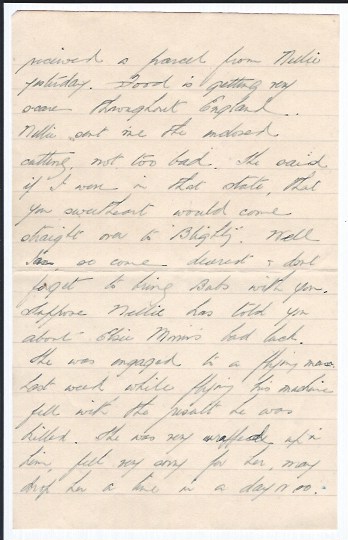 received a parcel from Nellie
yesterday. Food is getting very
scarce throughout England.
Nellie sent me the enclosed
cutting, not too bad. She said
if I were in that state, that
you sweetheart would come
straight over to "Blighty". Well
so come dearest & dont
forget to bring Bubs with you.
Suppose Nellie has told you
about Elsie Morris bad luck.
She was engaged to a flying man
Last week while flying his machine
fell with the result he was
killed. She was very wrapped up in
him, feel very sorry for her, may
drop her a line in a day or so.